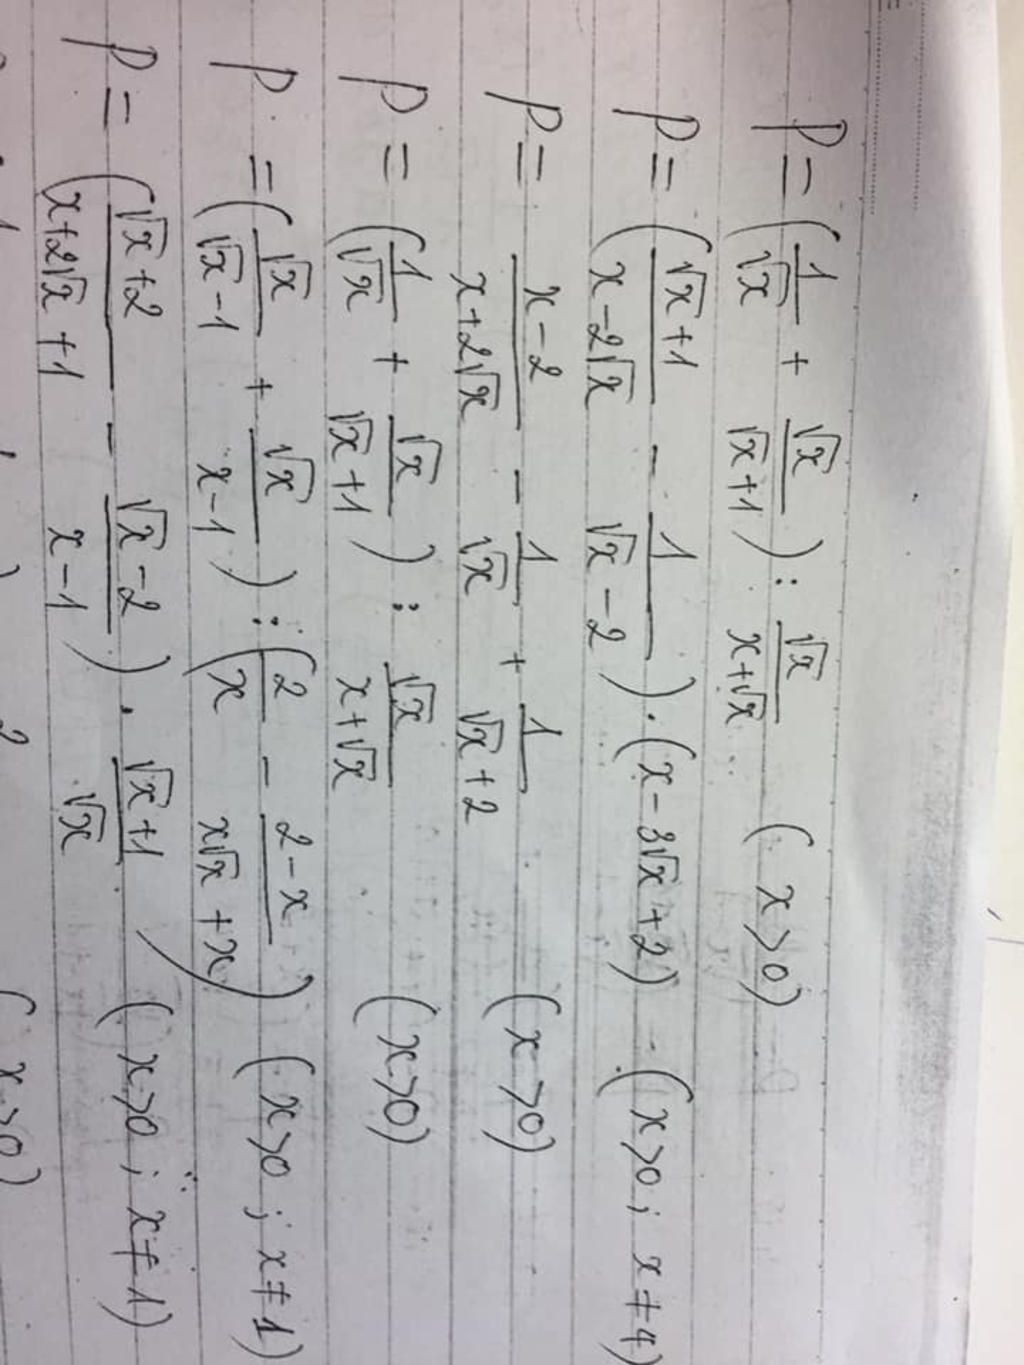 P = (1/√x + √x/(√x+1)) : √x/(x+√x) (x>0)
P = ((√x+1)/(x-2√x) - 1/(√x-2)) . (x-3√x+2) (x>0; x≠4)
P = (x-2)/(x+2√x) - 1/√x + 1/(√x+2) (x>0)
P = (1/√x + √x/(√x+1)) : √x/(x+√x) (x>0)
P = (√x/(√x-1) + √x/(x-1)) : (2/x - (2-x)/(x√x+x)) (x>0; x≠1)
P = ((√x+2)/(x+2√x+1) - (√x-2)/(x-1)) . (√x+1)/√x (x>0; x≠1)
(x>0)